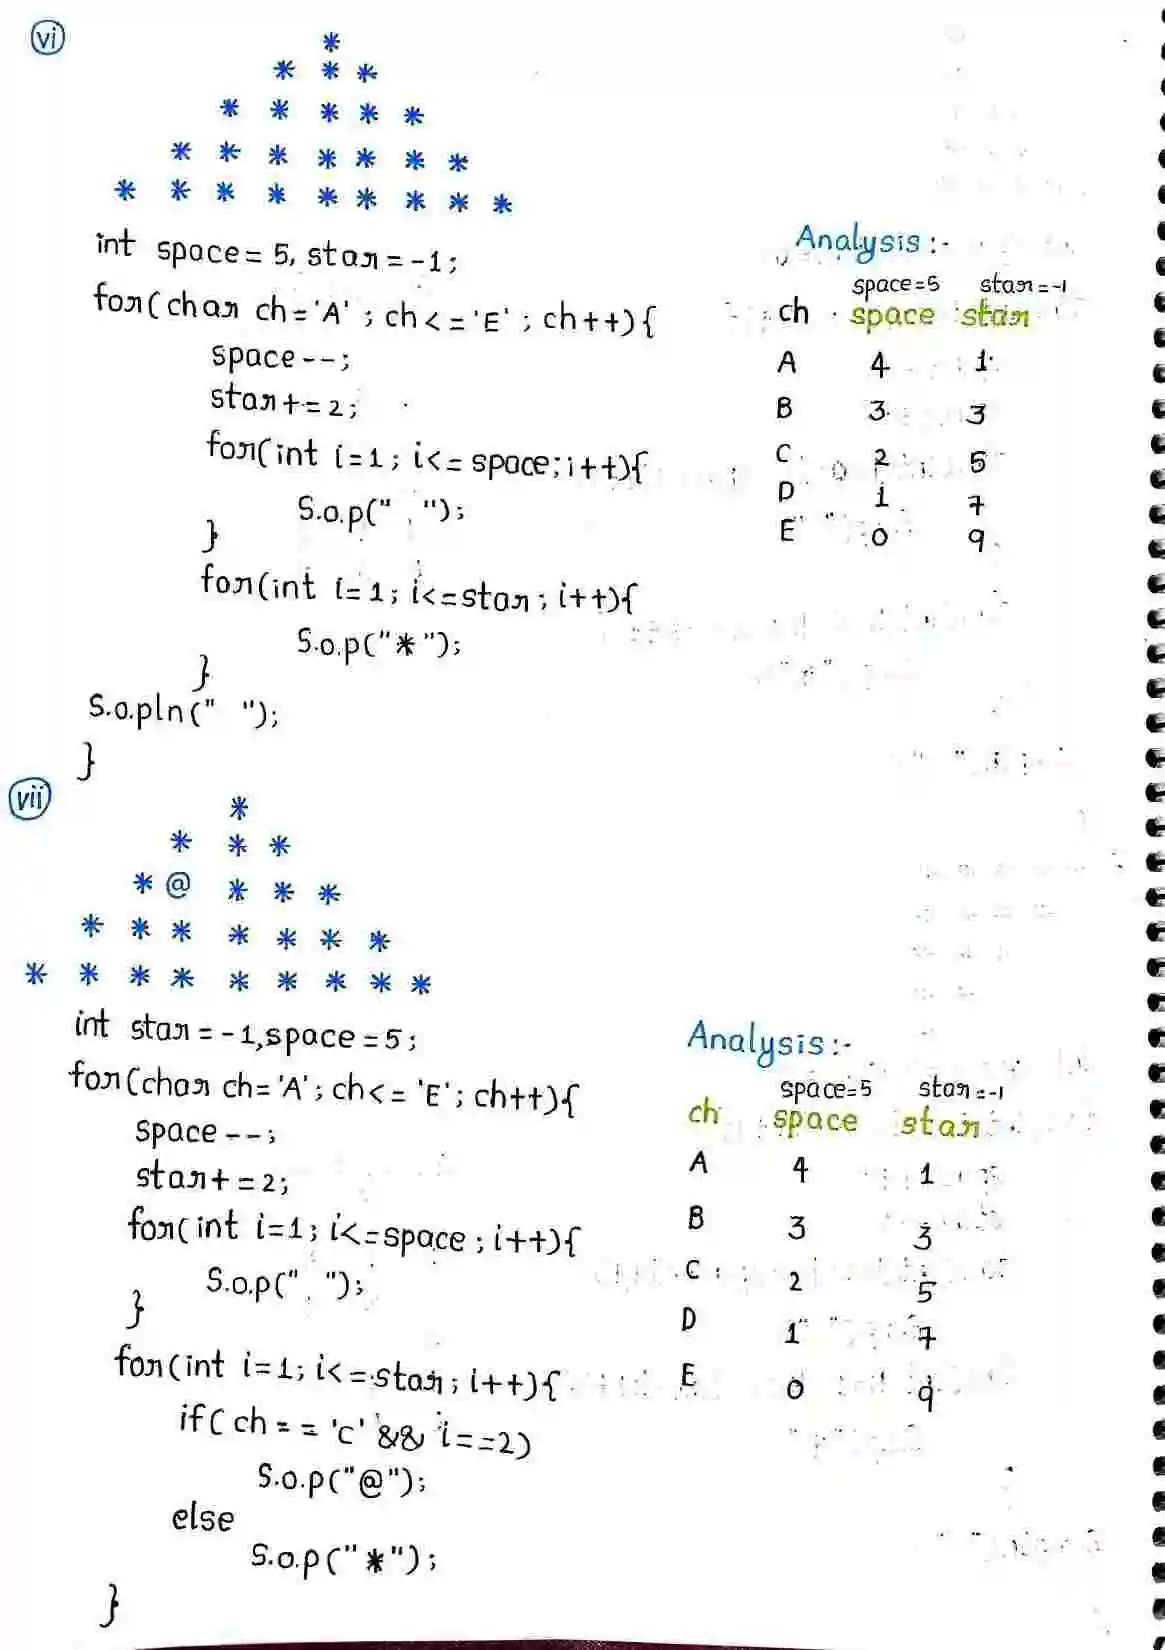 vi
*
* * *
* * * * *
* * * * * * *
* * * * * * * * *
int space = 5, star = -1;
for(char ch = 'A' ; ch <= 'E' ; ch++){
space--;
star += 2;
for(int i=1; i<= space; i++){
S.o.p(" ");
}
for(int i=1; i<=star; i++){
S.o.p("*");
}
S.o.pln(" ");
}
Analysis :-
space=5 star=-1
ch space star
A 4 1
B 3 3
C 2 5
D 1 7
E 0 9
vii
*
* * *
* @ * * *
* * * * * * *
* * * * * * * * *
int star = -1, space = 5;
for(char ch = 'A'; ch <= 'E'; ch++){
space--;
star += 2;
for(int i=1; i<=space; i++){
S.o.p(" ");
}
for(int i=1; i<=star; i++){
if(ch == 'C' && i==2)
S.o.p("@");
else
S.o.p("*");
}
Analysis :-
space=5 star=-1
ch space star
A 4 1
B 3 3
C 2 5
D 1 7
E 0 9